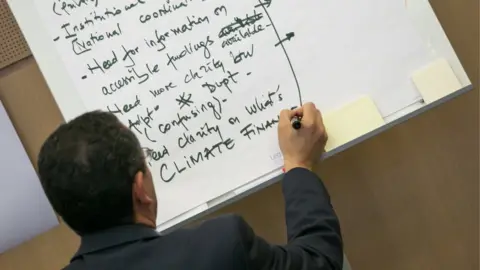 - Institutional
(National coordin
- Head for information on
accessible fundings available
Head more clarity low
Adpt * Dupt
(confusing).
eed clarity on What's
CLIMATE FINAN